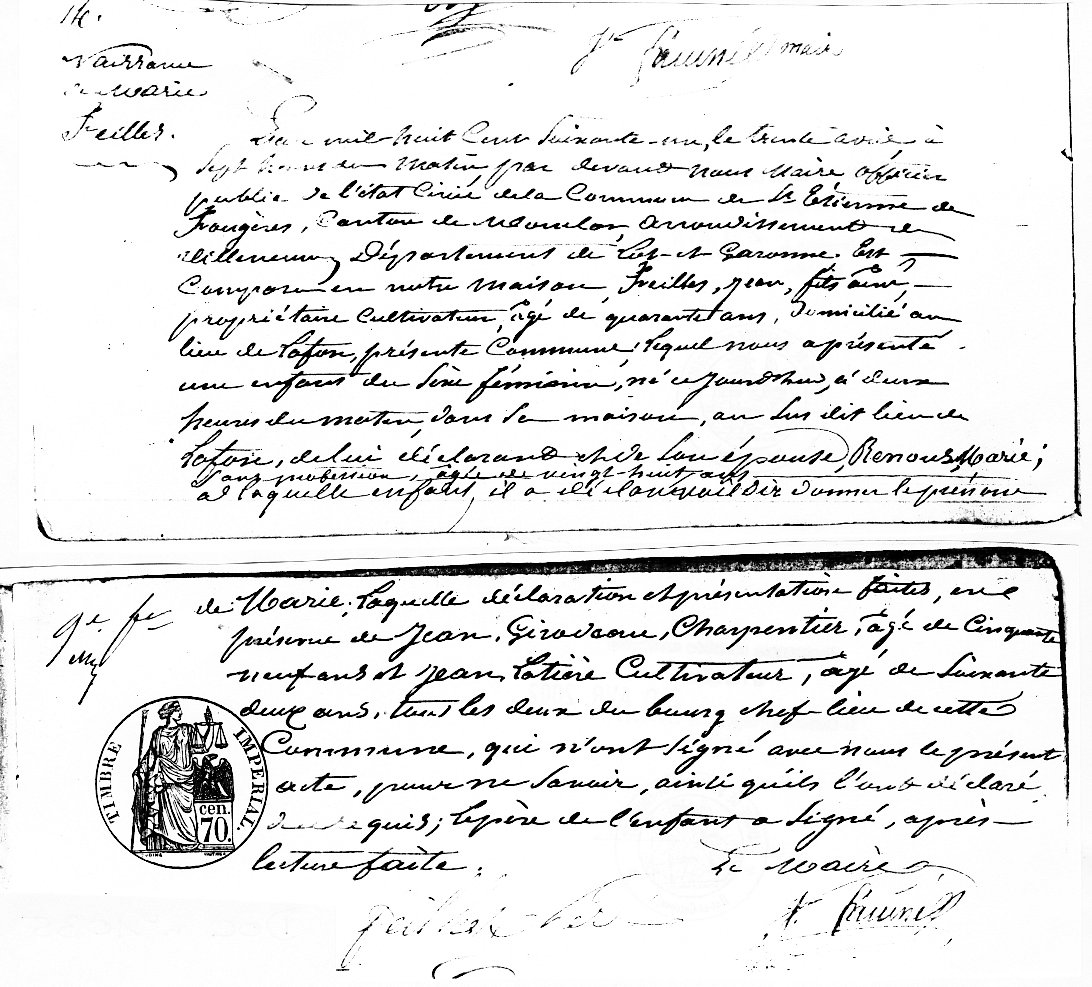 14.
Naissance
de Marie
Feilles.
L'an mil huit cent soixante-un, le trente avril, à
sept heures du matin, par devant nous Maire officier
public de l'état Civil de la Commune de St Etienne de
Fougères, Canton de Monclar, arrondissement de
Villeneuve, Département de Lot-et-Garonne. Est
Comparu en notre maison, Feilles, Jean, fils aîné,
propriétaire cultivateur, âgé de quarante ans, domicilié au
lieu de Lafon, présente Commune; lequel nous a présenté
une enfant du sexe féminin, né ce jourd'hui, à deux
heures du matin, dans sa maison, au sus dit lieu de
Lafon, de lui déclarant et de son épouse, Renous, Marie;
sans profession, âgée de vingt-huit ans
a laquelle enfant, il a déclaré vouloir donner le prénom
de Marie; laquelle déclaration et présentation faites, en
présence de Jean, Charpentier, âgé de Cinquante
neuf ans et Jean, Latière Cultivateur, âgé de Soixante
deux ans, tous les deux du bourg chef-lieu de cette
Commune, qui n'ont signé avec nous le présent
acte, pour ne savoir, ainsi qu'ils l'ont déclaré
de ce requis; le père de l'enfant a signé, après
lecture faite.
Le Maire
TIMBRE IMPÉRIAL
cen.
70.